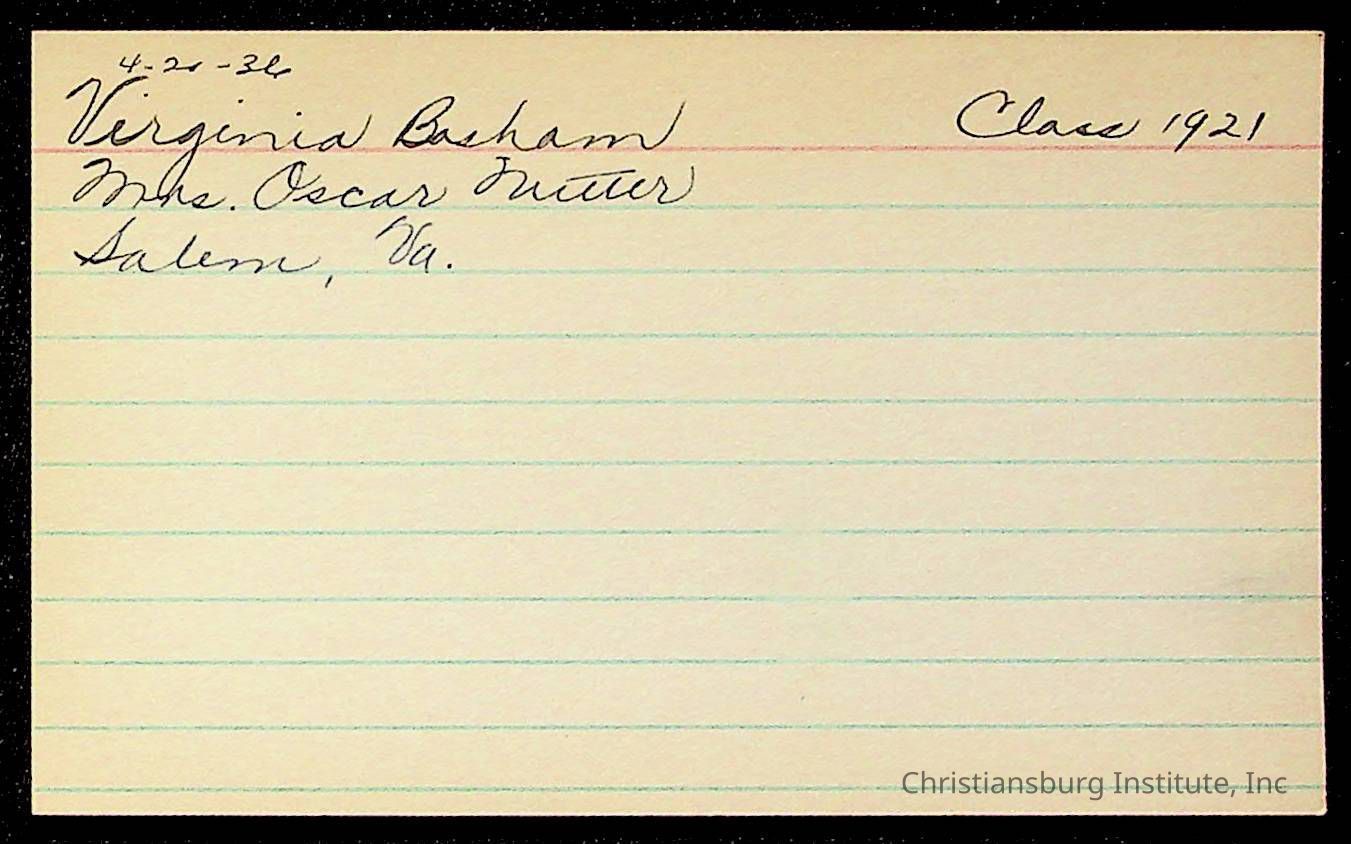 4-20-36
Virginia Basham Class 1921
Mrs. Oscar Nutter
Salem, Va.
Christiansburg Institute, Inc